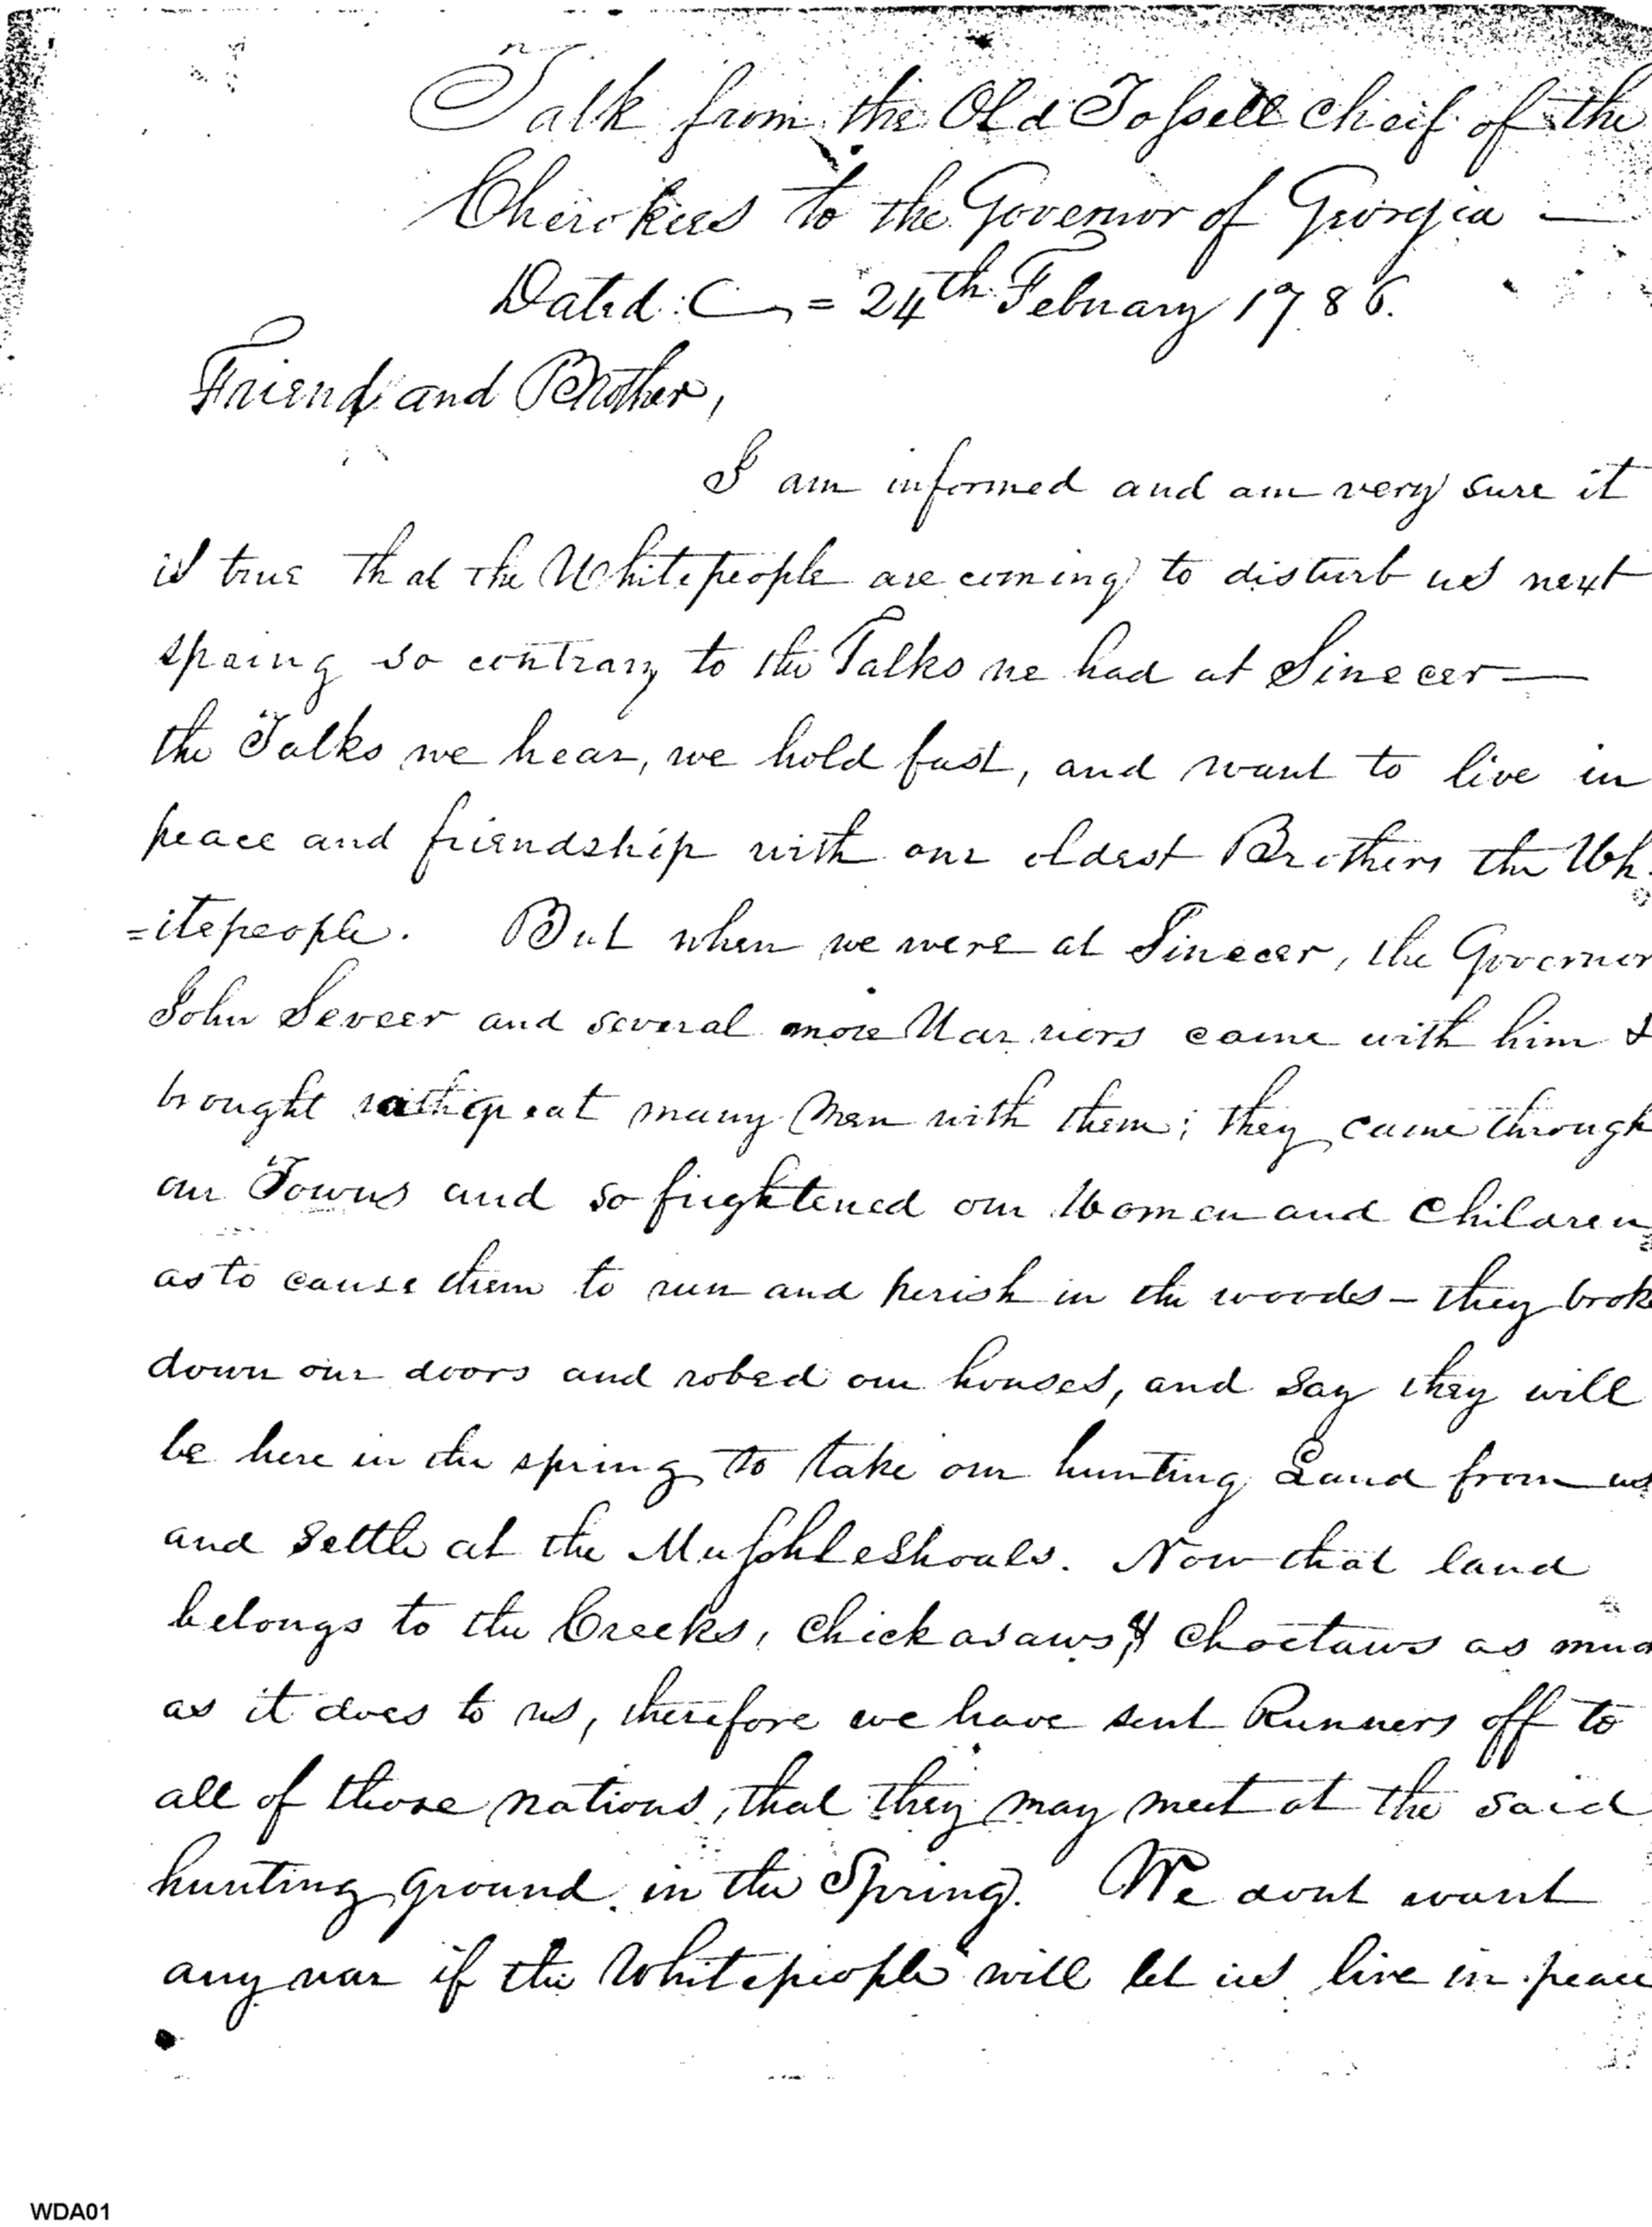 Talk from the Old Tossell Cheif of the
Cherokees to the Governor of Georgia —
Dated: = 24th February 1786.
Friend and Brother,
I am informed and am very sure it
is true that the Whitepeople are coming to disturb us next
spring so contrary to the Talks we had at Sinecer —
the Talks we hear, we hold fast, and want to live in
peace and friendship with our oldest Brothers the Wh
=itepeople. But when we were at Sinecer, the Governor
John Seveer and several more Warriors came with him &
brought great many Men with them; they came through
our Towns and so frightened our Women and Children
as to cause them to run and perish in the woods — they broke
down our doors and robed our houses, and say they will
be here in the spring to take our hunting Land from us
and settle at the Musshleshoals. Now that land
belongs to the Creeks, Chickasaws & Choctaws as much
as it does to us, therefore we have sent Runners off to
all of those nations, that they may meet at the said
hunting ground in the Spring. We dont want
any war if the Whitepeople will let us live in peace
WDA01